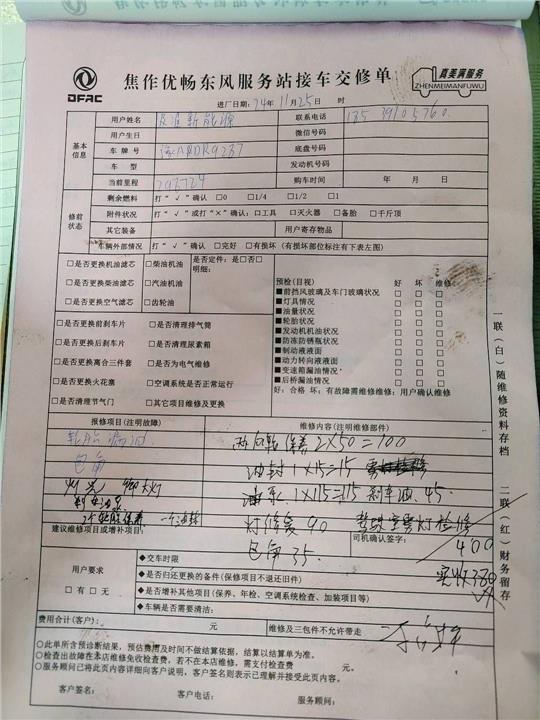 DFAC
焦作优畅东风服务站接车交修单
真美满服务
ZHENMEIMANFUWU
进厂日期：24年11月25日 时
基本信息
用户姓名 新能源 联系电话
用户生日 微信号码
车牌号 底盘号码
车型 发动机号码
当前里程 购车时间 年 月 日
修前状态
剩余燃料 打“√”确认 □0 □1/4 □1/2 □1
附件状况 打“√”或打“×”确认：□工具 □灭火器 □备胎 □千斤顶
其它装备 用户寄存物品
车辆外部情况 打“√”确认 □完好 □有损坏（有损坏部位标注有下表左图）
□是否更换机油滤芯 □柴油机油 是否定件：是□否□
明细：
□是否更换柴油滤芯 □汽油机油
□是否更换空气滤芯 □齿轮油
□是否更换前刹车片 □是否清理排气筒
□是否更换后刹车片 □是否清理尿素箱
□是否更换离合三件套 □是否为电气维修
□是否更换火花塞 □空调系统是否正常运行
□是否清理节气门 □其它项目维修及更换
预检(目视) 好 坏 维修
■前挡风玻璃及车门玻璃状况 □ □ □
■灯具情况 □ □ □
■油量状况 □ □ □
■轮胎状况 □ □ □
■发动机机油状况 □ □ □
■防冻防锈瓶状况 □ □ □
■制动液液面 □ □ □
■动力转向液液面 □ □ □
■变速箱漏油情况 □ □ □
■后桥漏油情况 □ □ □
好：合格 坏：有故障需维修维修：用户确认维修
报修项目(注明故障) 维修内容(注明维修部件)
两 轮 保养 2×50=100
包角
油封 1×15=15
大灯
1×115=115 刹车油 45
灯修复 90 灯检修
建议维修项目或增补项目：
包角 35
司机确认签字：
400
实收380
用户要求
□有 □无
◆交车时限
◆是否归还更换的备件(保修项目不退还旧件)
◆是否增补其他项目(保养、年检、空调系统检查、加装项目等)
◆车辆是否需要清洁：
费用合计(客户)： 元 维修及三包件不允许带走
○此单所含预诊断结果，预估费用及时间不做结算依据，结算以结算单为准。
○检查出故障在本店维修免收检查费，若不在本店维修，需支付检查费 元。
○服务顾问已将此页内容详细向客户说明，客户签名则表示已理解并接受此页内容。
客户签名： 客户电话： 服务顾问：
一联(白)随维修资料存档 二联(红)财务留存